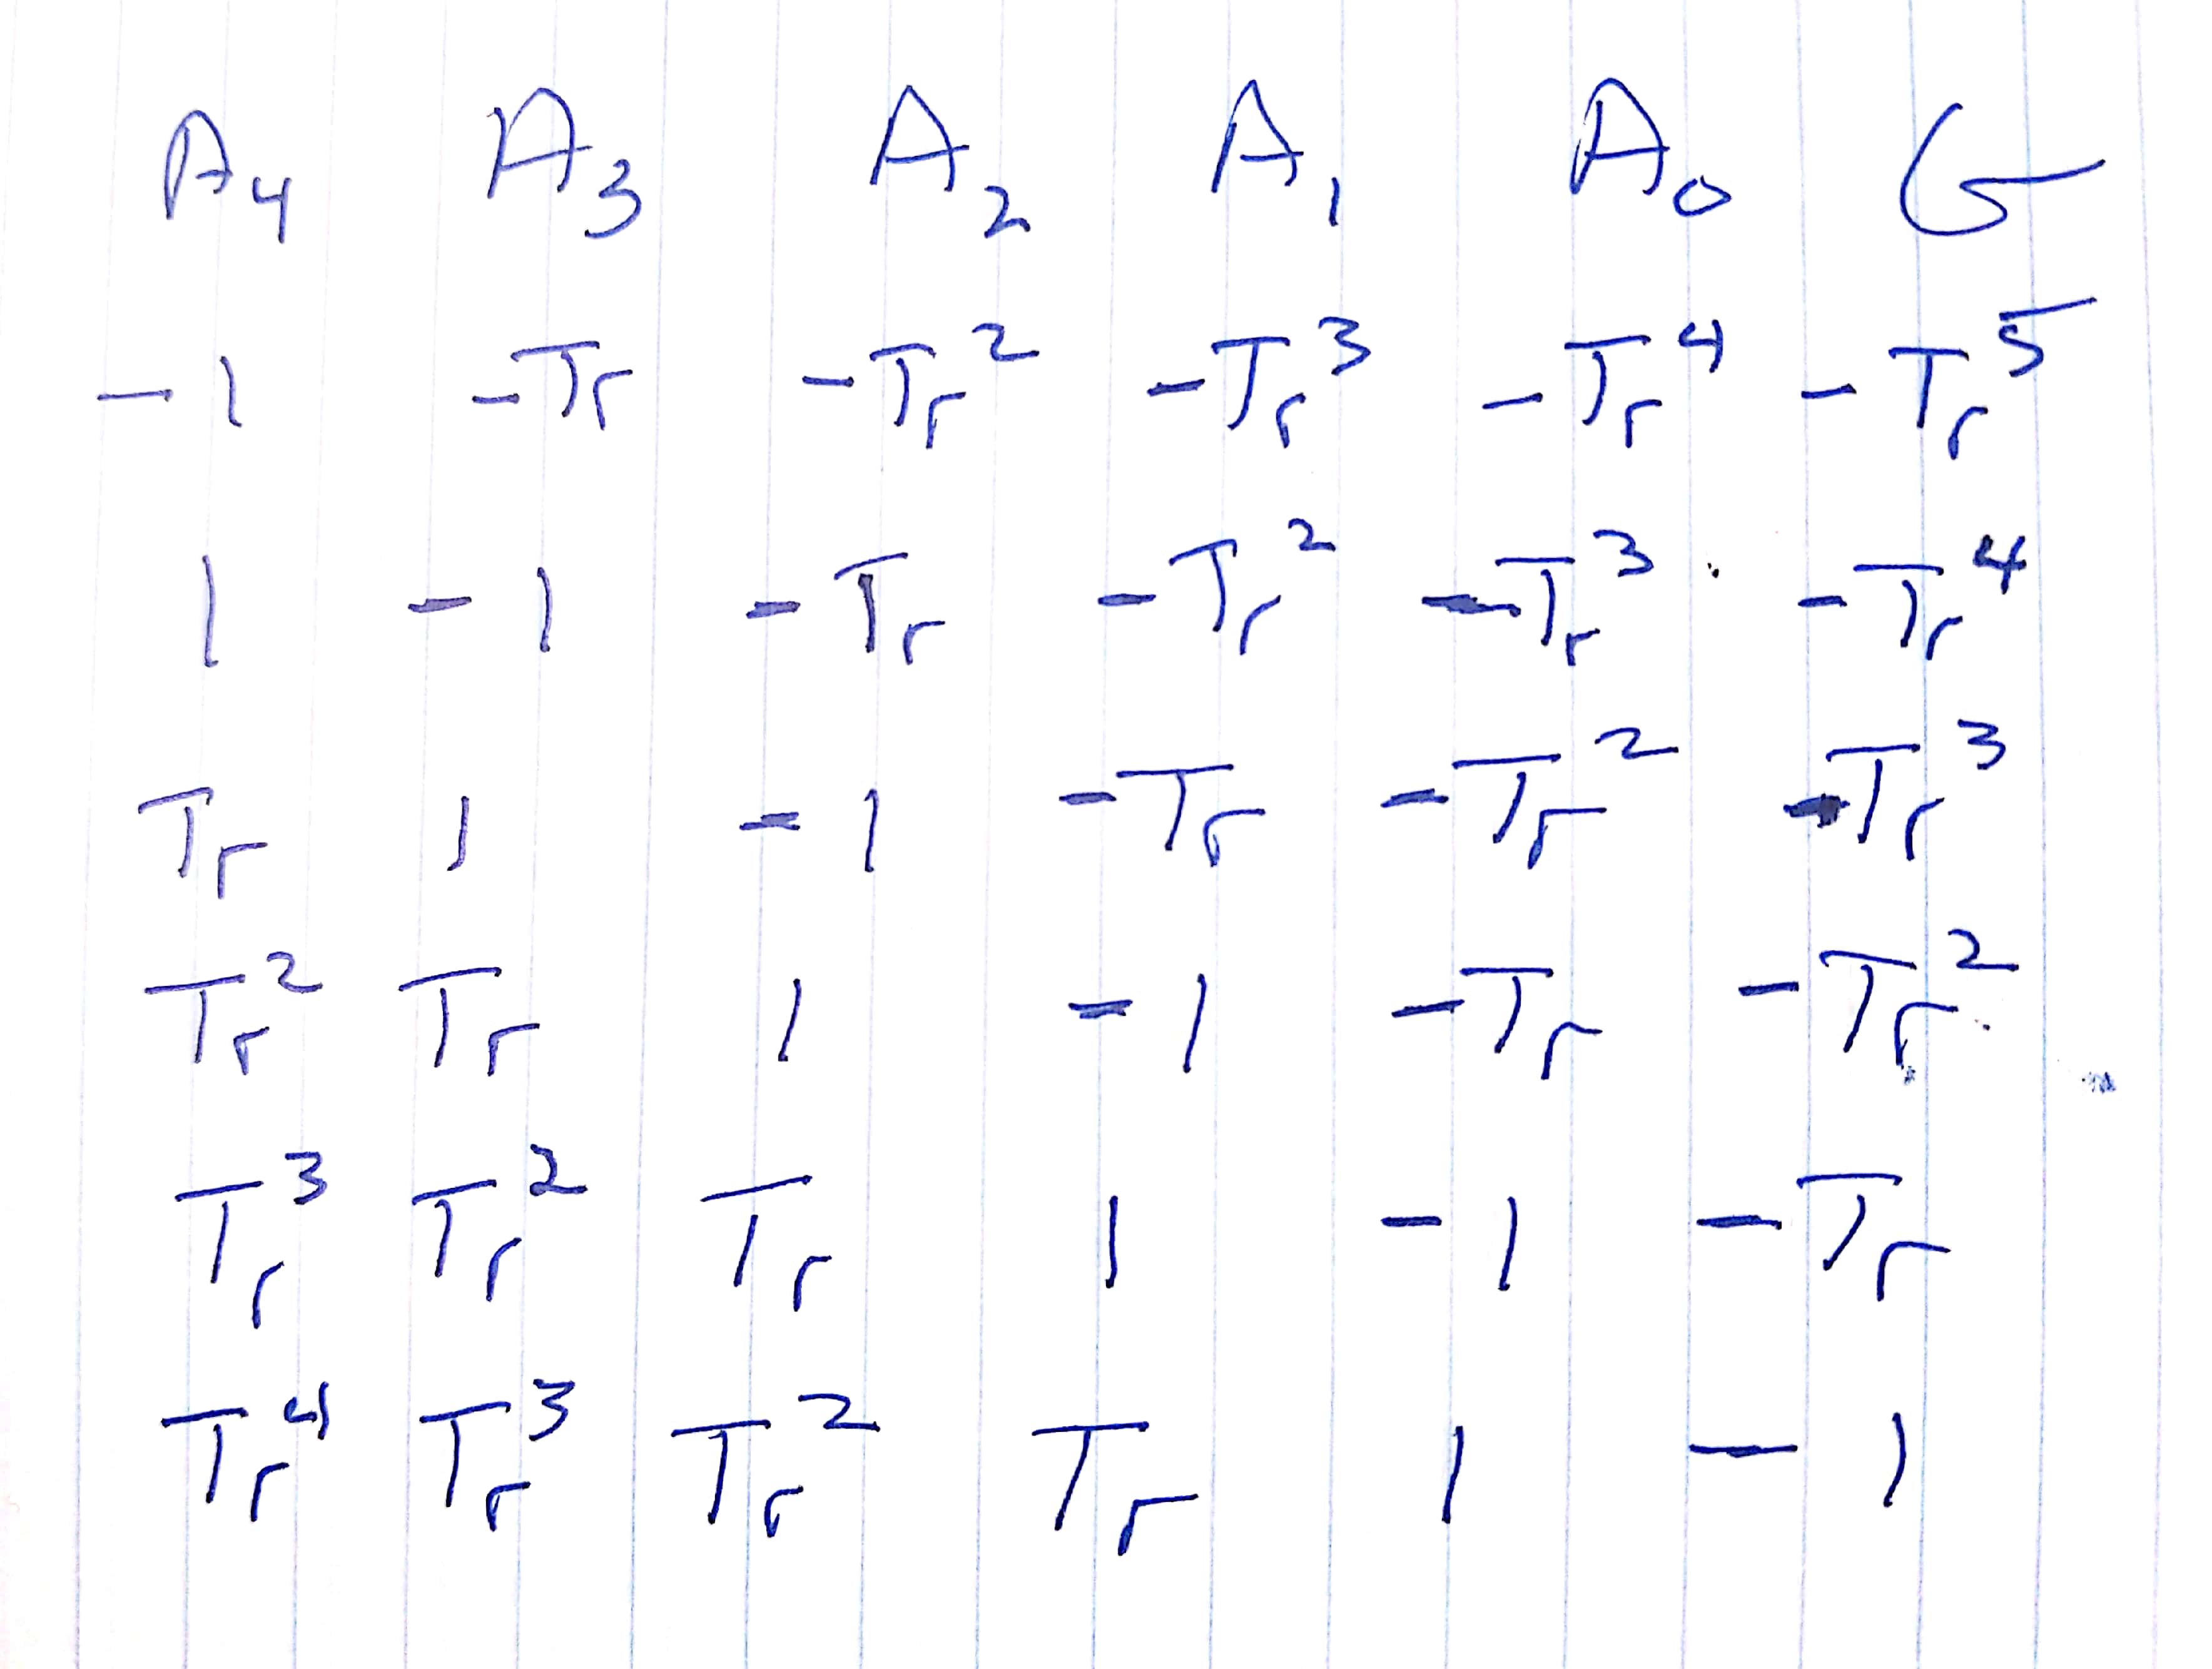 A₄ A₃ A₂ A₁ A₀ G
-1 -Tᵣ -Tᵣ² -Tᵣ³ -Tᵣ⁴ -Tᵣ⁵
1 -1 -Tᵣ -Tᵣ² -Tᵣ³ -Tᵣ⁴
Tᵣ 1 -1 -Tᵣ -Tᵣ² -Tᵣ³
Tᵣ² Tᵣ 1 -1 -Tᵣ -Tᵣ²
Tᵣ³ Tᵣ² Tᵣ 1 -1 -Tᵣ
Tᵣ⁴ Tᵣ³ Tᵣ² Tᵣ 1 -1